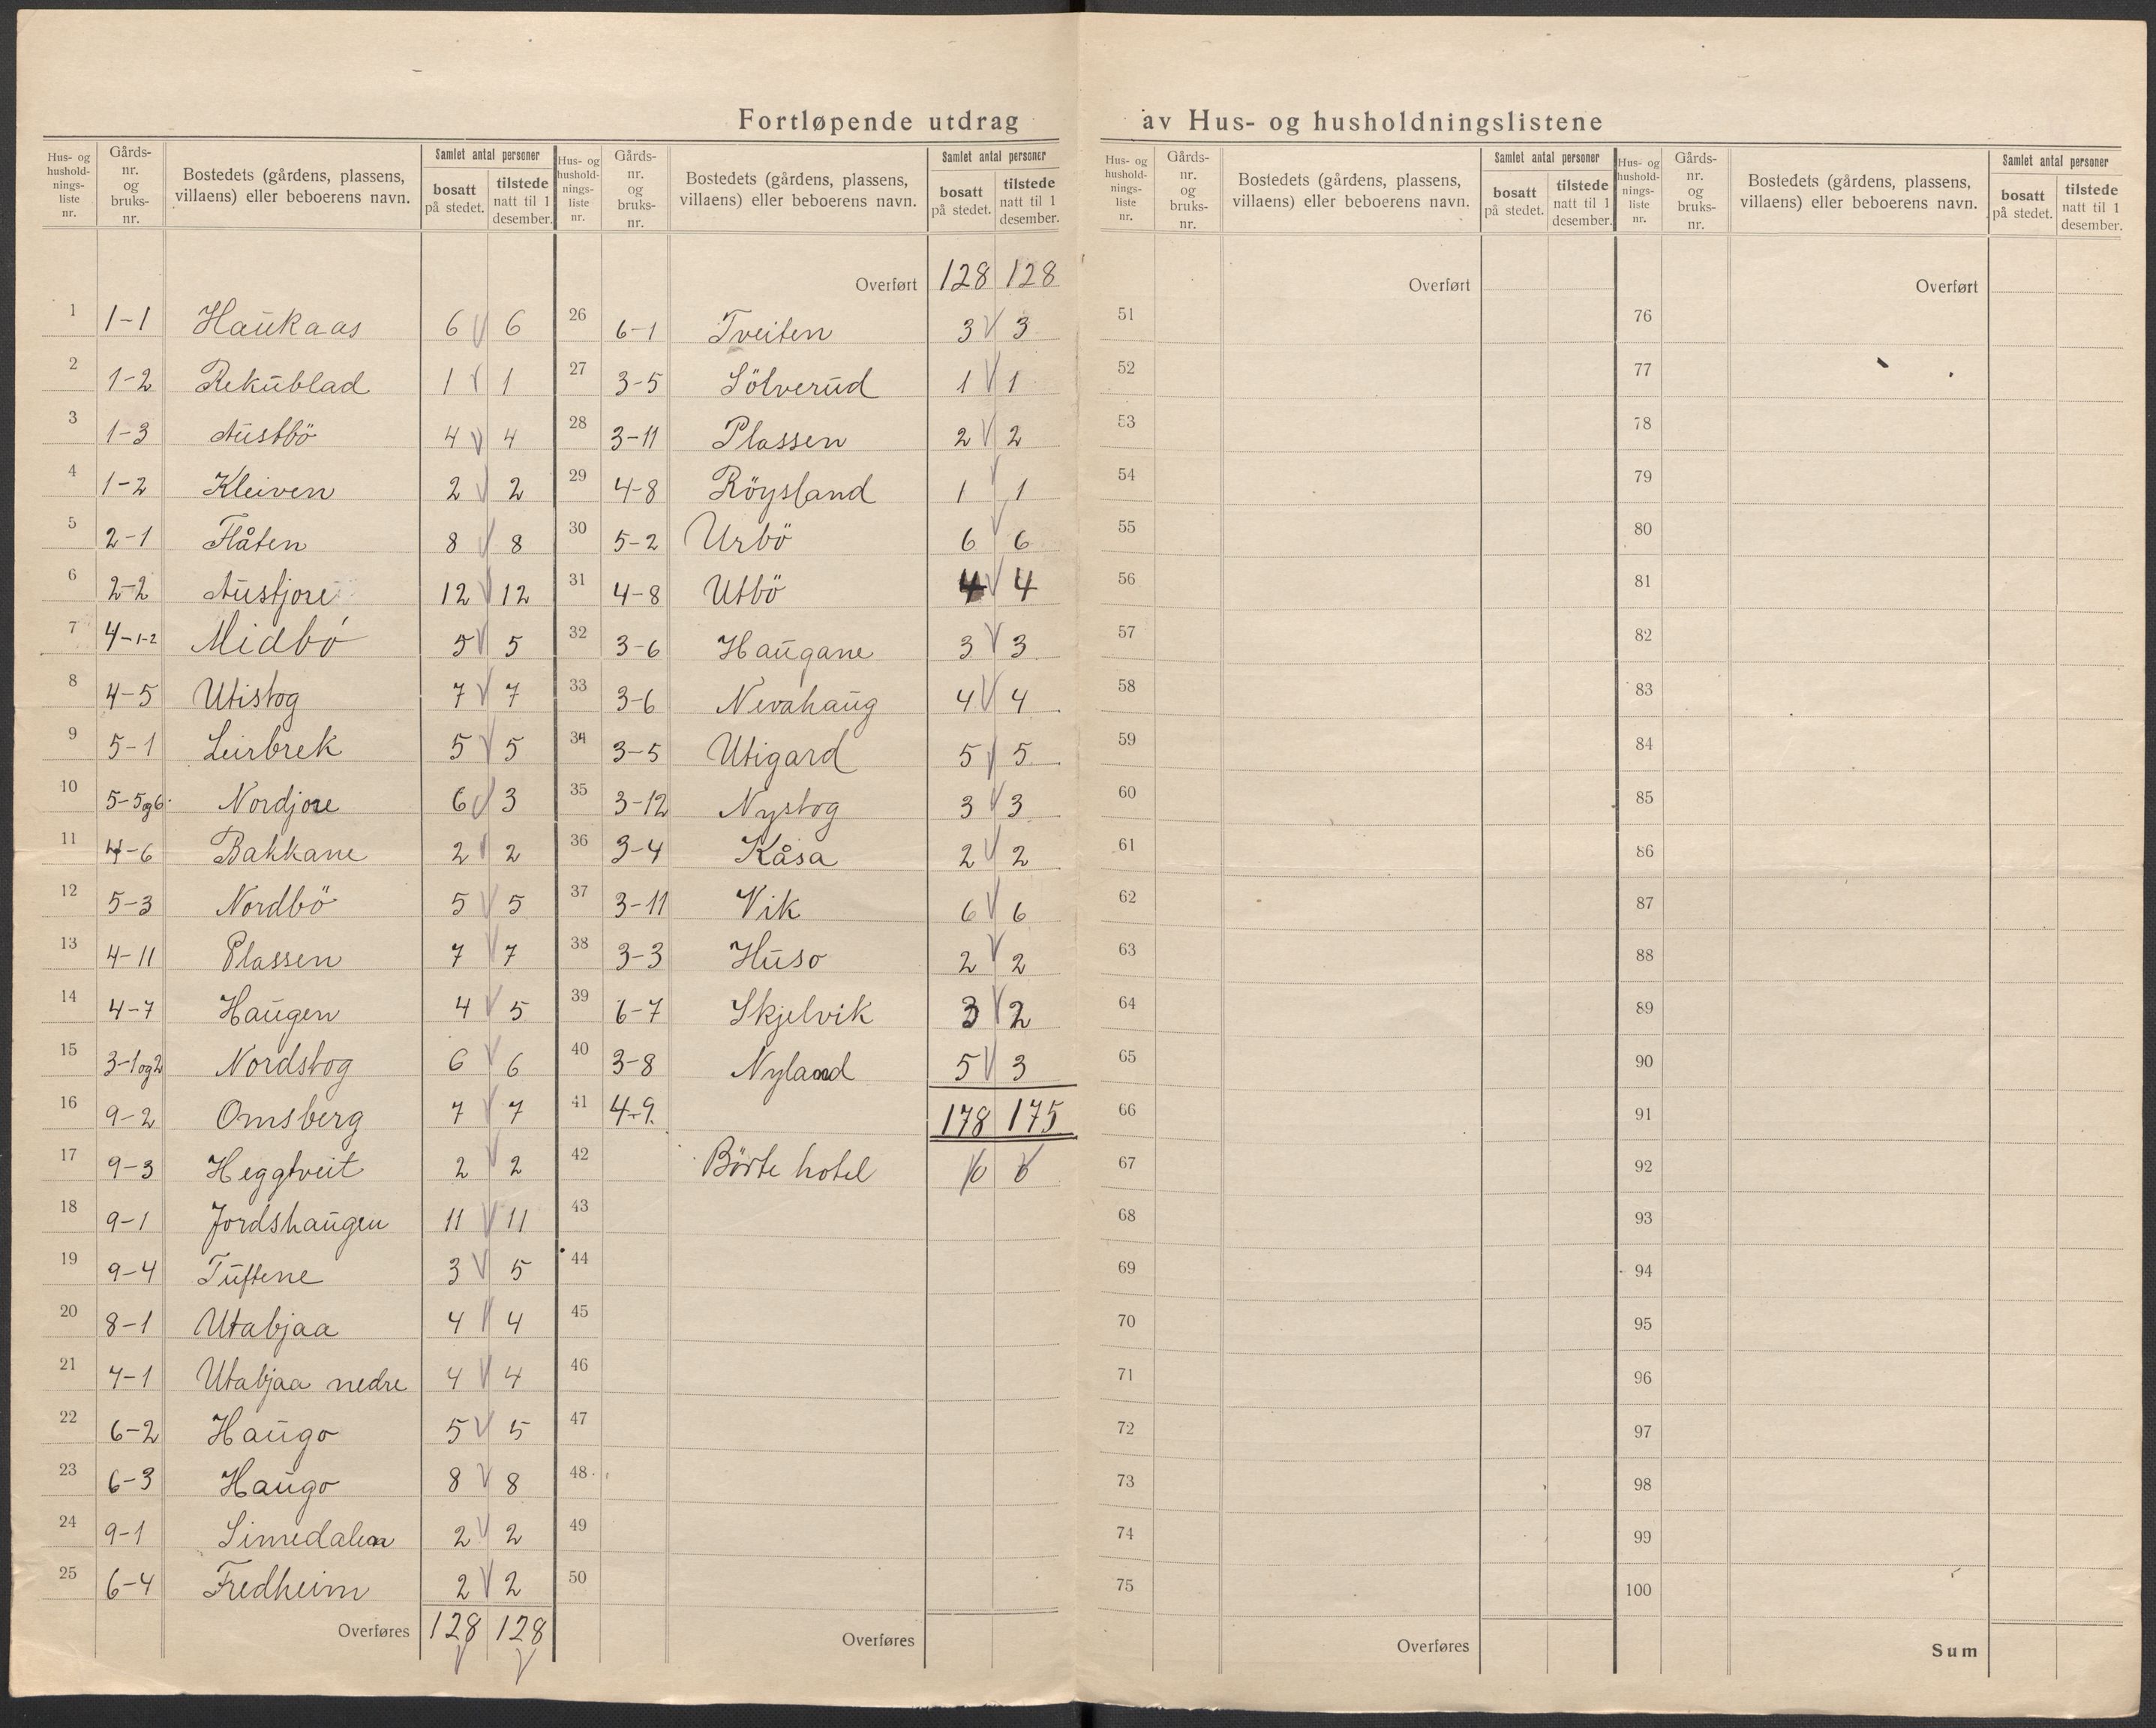 Fortløpende utdrag av Hus- og husholdningslistene
Hus- og husholdnings-liste nr. | Gårds-nr. og bruks-nr. | Bostedets (gårdens, plassens, villaens) eller beboerens navn. | Samlet antal personer bosatt på stedet. | tilstede natt til 1 desember.
1 1-1 Haukaas 6 6
2 1-2 Rekublad 1 1
3 1-3 Austbö 4 4
4 1-2 Kleiven 2 2
5 2-1 Flåten 8 8
6 2-2 Austjore 12 12
7 4-1-2 Midbö 5 5
8 4-5 Utistog 7 7
9 5-1 Leirbrek 5 5
10 5-5og6. Nordjore 6 3
11 4-6 Bakkane 2 2
12 5-3 Nordbö 5 5
13 4-11 Plassen 7 7
14 4-7 Haugen 4 5
15 3-1og2 Nordstog 6 6
16 9-2 Omsberg 7 7
17 9-3 Heggtveit 2 2
18 9-1 Jordshaugen 11 11
19 9-4 Tuftene 3 5
20 8-1 Utabjaa 4 4
21 7-1 Utabjaa nedre 4 4
22 6-2 Haugo 5 5
23 6-3 Haugo 8 8
24 9-1 Simedalen 2 2
25 6-4 Fredheim 2 2
Overføres 128 128
Hus- og husholdnings-liste nr. | Gårds-nr. og bruks-nr. | Bostedets (gårdens, plassens, villaens) eller beboerens navn. | Samlet antal personer bosatt på stedet. | tilstede natt til 1 desember.
Overført 128 128
26 6-1 Tveiten 3 3
27 3-5 Sölverud 1 1
28 3-11 Plassen 2 2
29 4-8 Röysland 1 1
30 5-2 Urbö 6 6
31 4-8 Utbö 4 4
32 3-6 Haugane 3 3
33 3-6 Nevahaug 4 4
34 3-5 Utigard 5 5
35 3-12 Nystog 3 3
36 3-4 Kåsa 2 2
37 3-11 Vik 6 6
38 3-3 Huso 2 2
39 6-7 Skjelvik 3 2
40 3-8 Nyland 5 3
41 4-9. 178 175
42 Börte hotel 0 0
43
44
45
46
47
48
49
50
Overføres
Hus- og husholdnings-liste nr. | Gårds-nr. og bruks-nr. | Bostedets (gårdens, plassens, villaens) eller beboerens navn. | Samlet antal personer bosatt på stedet. | tilstede natt til 1 desember.
Overført
51
52
53
54
55
56
57
58
59
60
61
62
63
64
65
66
67
68
69
70
71
72
73
74
75
Overføres
Hus- og husholdnings-liste nr. | Gårds-nr. og bruks-nr. | Bostedets (gårdens, plassens, villaens) eller beboerens navn. | Samlet antal personer bosatt på stedet. | tilstede natt til 1 desember.
Overført
76
77
78
79
80
81
82
83
84
85
86
87
88
89
90
91
92
93
94
95
96
97
98
99
100
Sum